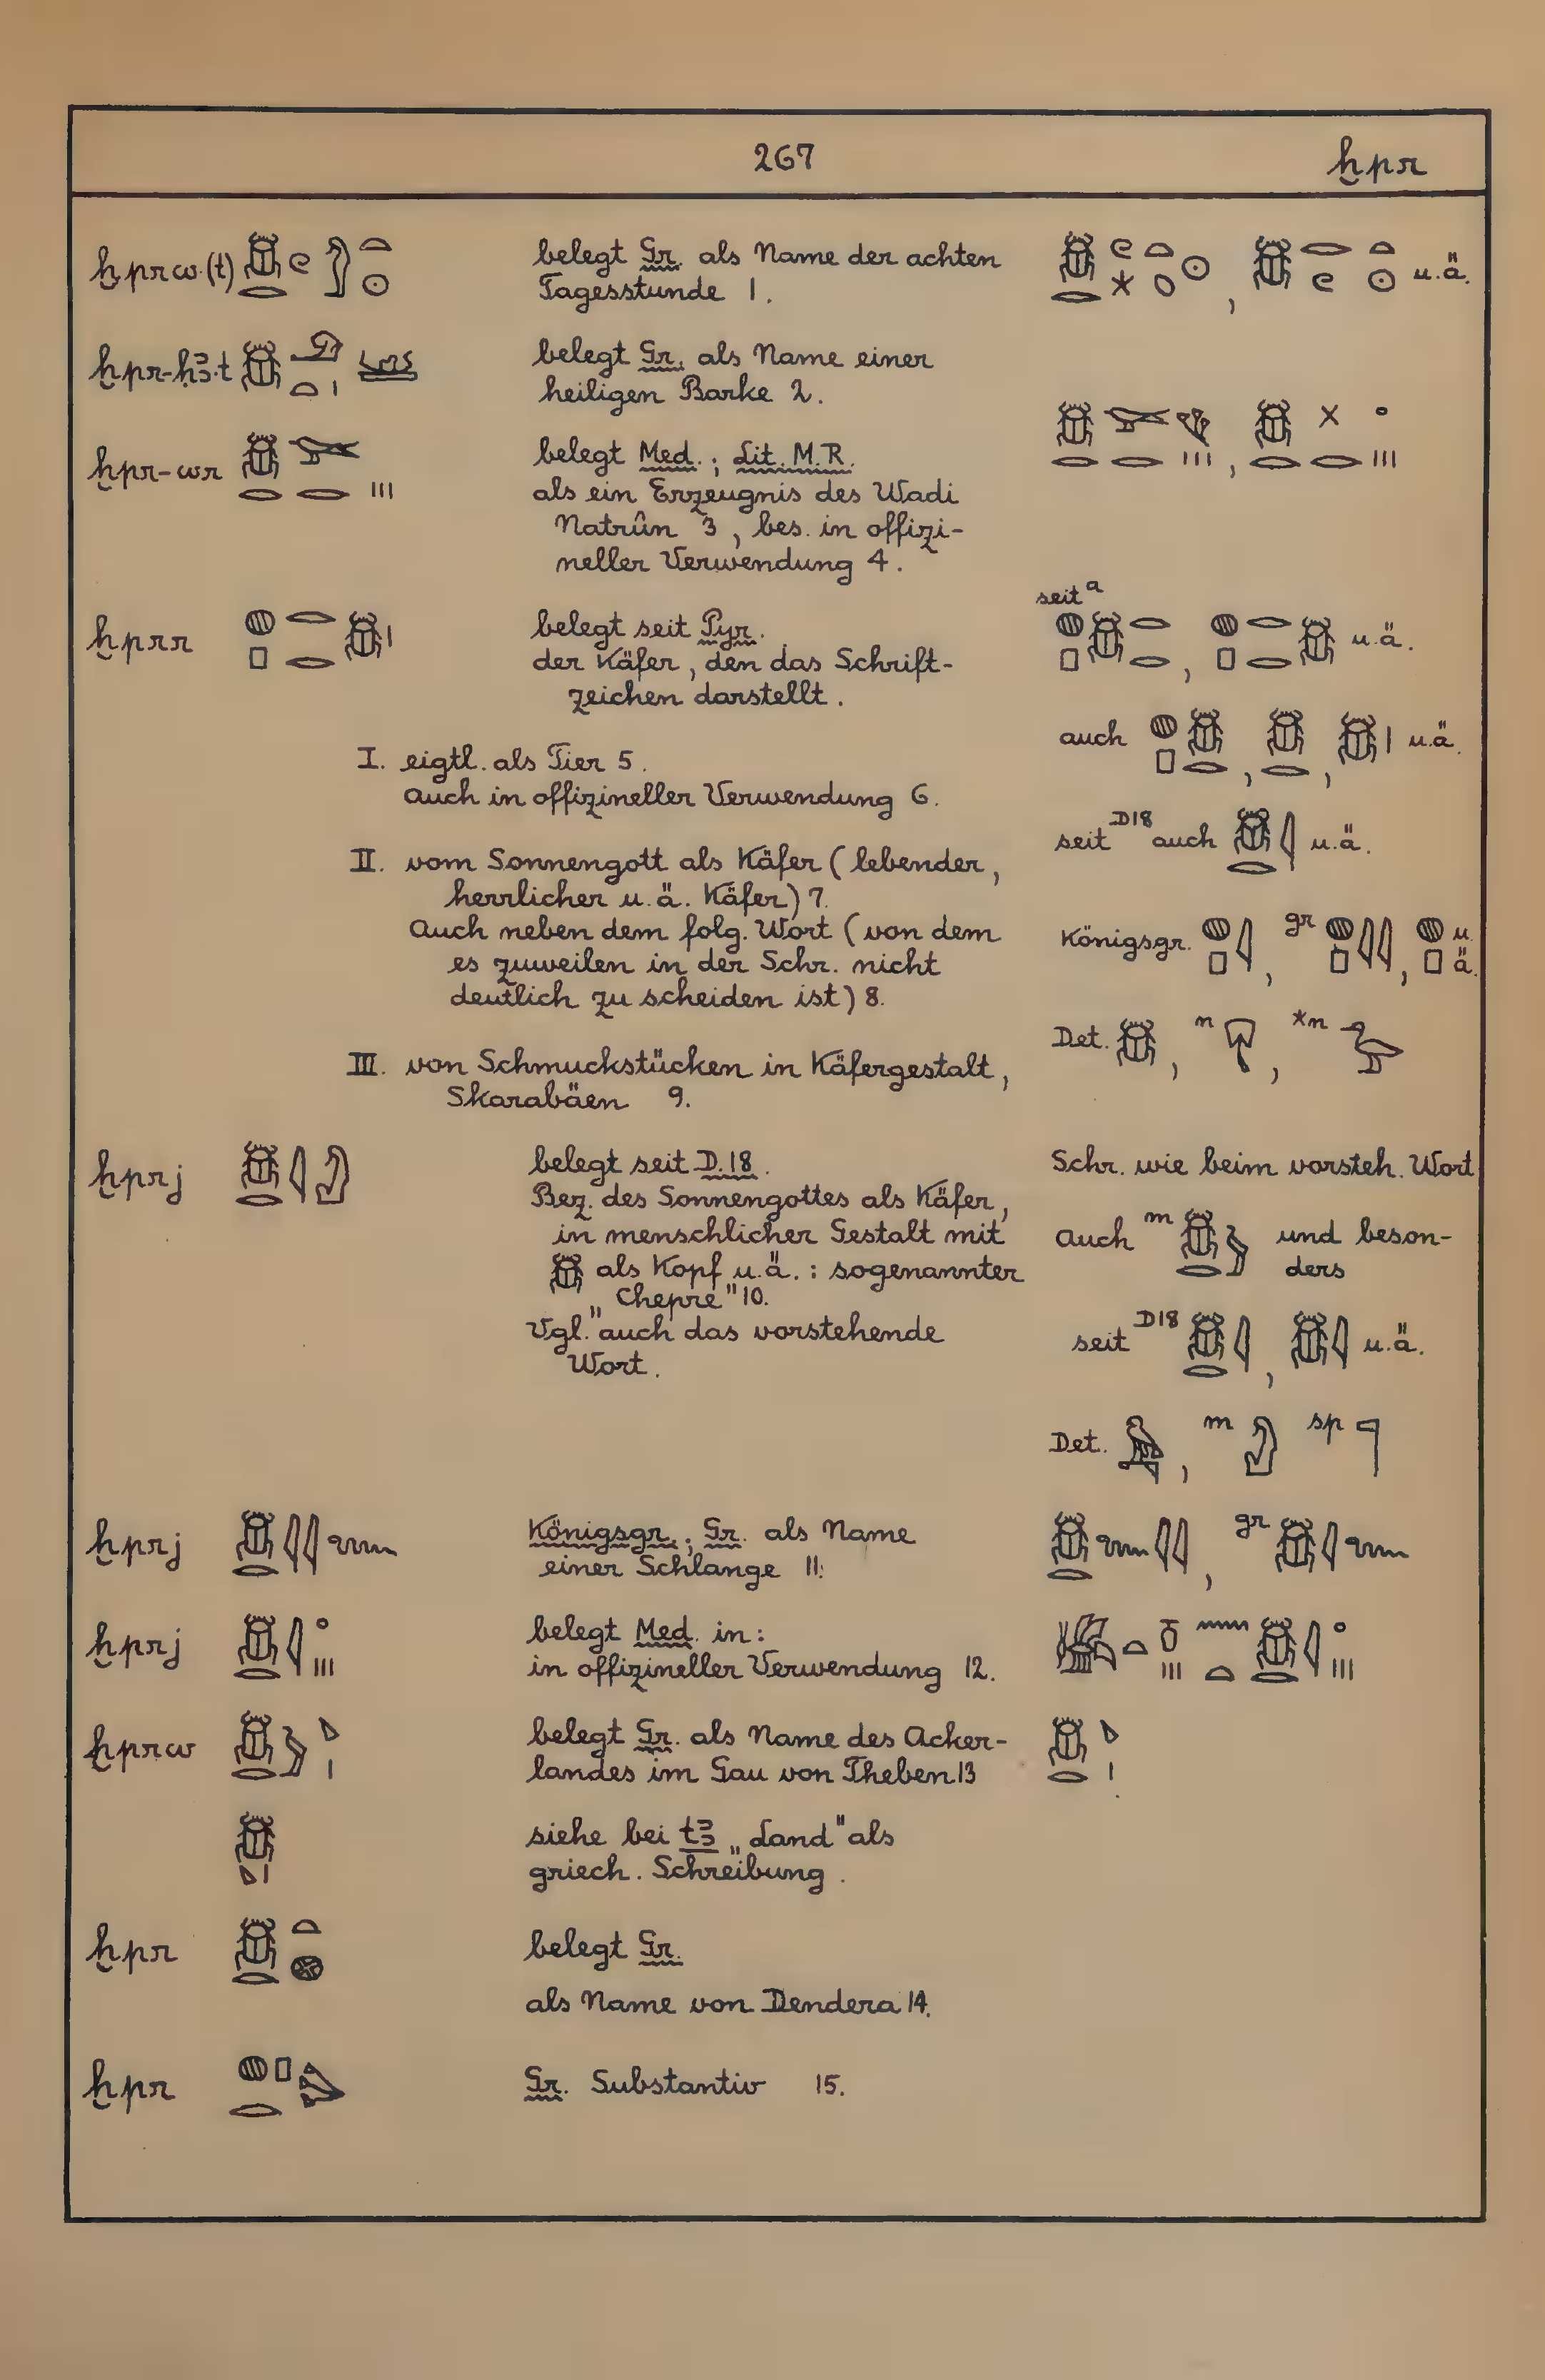 267 ḫpr
ḫprw.(t) belegt Gr. als Name der achten
Tagesstunde 1. u.ä.
ḫpr-ḥꜣ.t belegt Gr. als Name einer
heiligen Barke 2.
ḫpr-wr belegt Med.; Lit. M.R.
als ein Erzeugnis des Wadi
Natrûn 3, bes. in offizi-
neller Verwendung 4.
ḫprr belegt seit Pyr. seit a
der Käfer, den das Schrift- u.ä.
zeichen darstellt.
auch u.ä.
I. eigtl. als Tier 5.
auch in offizineller Verwendung 6.
seit D18 auch u.ä.
II. vom Sonnengott als Käfer (lebender,
herrlicher u.ä. Käfer) 7.
Auch neben dem folg. Wort (von dem
es zuweilen in der Schr. nicht
deutlich zu scheiden ist) 8.
Königsgr. gr u.ä.
Det. n *n
III. von Schmuckstücken in Käfergestalt,
Skarabäen 9.
ḫprj belegt seit D.18. Schr. wie beim vorsteh. Wort
Bez. des Sonnengottes als Käfer,
in menschlicher Gestalt mit
als Kopf u.ä.: sogenannter
„Chepre" 10.
Vgl. auch das vorstehende
Wort.
Auch m und beson-
ders
seit D18 u.ä.
Det. m sp
ḫprj Königsgr.; Gr. als Name gr
einer Schlange 11.
ḫprj belegt Med. in:
in offizineller Verwendung 12.
ḫprw belegt Gr. als Name des Acker-
landes im Gau von Theben 13
siehe bei tꜣ „Land" als
griech. Schreibung.
ḫpr belegt Gr.
als Name von Dendera 14.
ḫpr Gr. Substantiv 15.